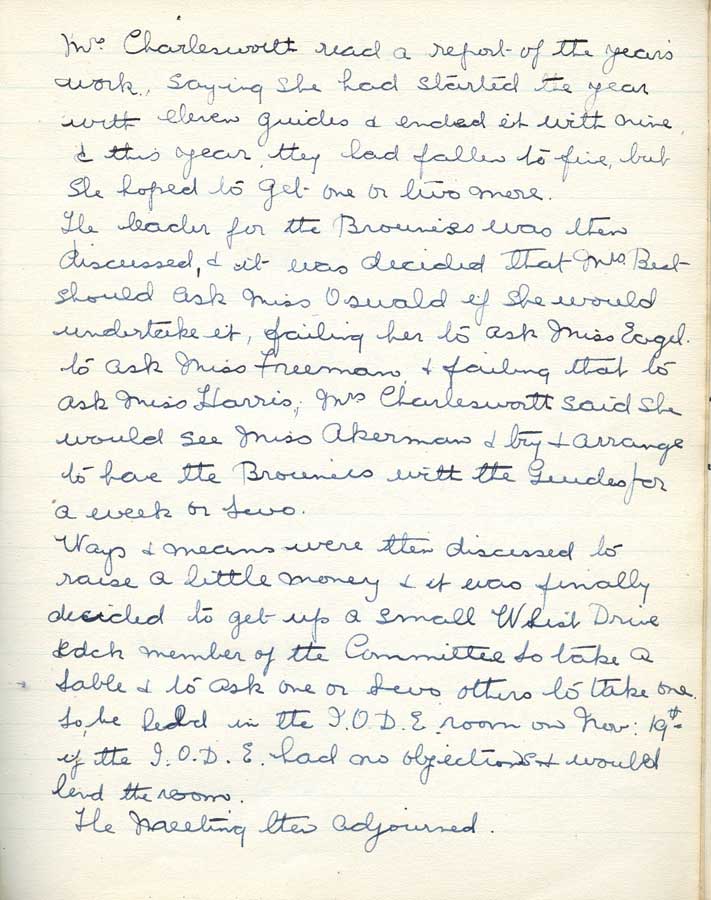 Mrs. Charlesworth read a report of the year's
work, saying she had started the year
with eleven guides & ended it with nine,
& this year, they had fallen to five, but
she hoped to get one or two more.
The leader for the Brownies was then
discussed, & it was decided that Mrs. Best
should ask Miss Oswald if she would
undertake it, failing her to ask Miss Eagel.
to ask Miss Freeman, & failing that to
ask Miss Harris, Mrs Charlesworth said she
would see Miss Akerman & try & arrange
to have the Brownies with the Guides for
a week or two.
Ways & means were then discussed to
raise a little money & it was finally
decided to get up a small Whist Drive
Each member of the Committee to take a
table & to ask one or two others to take one.
to be held in the I.O.D.E. room on Nov: 19th
if the I.O.D.E. had no objections & would
lend the room.
The Meeting then adjourned.